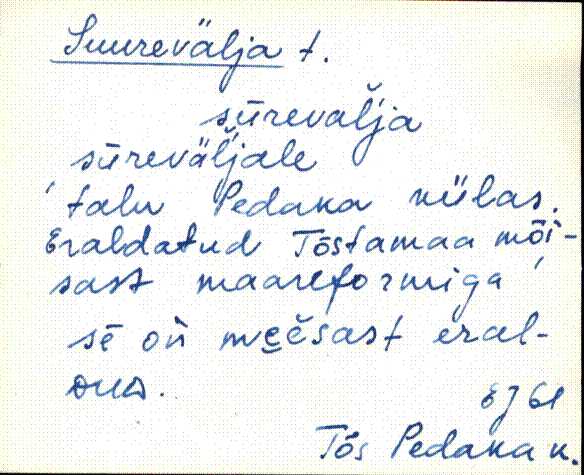 Suurevälja t.
sūrevaľja
sūreväľjale
talu Pedaka külas.
Eraldatud Tõstamaa mõi-
sast maareformiga
sē oñ meešast eral-
EJ 61
Tõs Pedaka k.